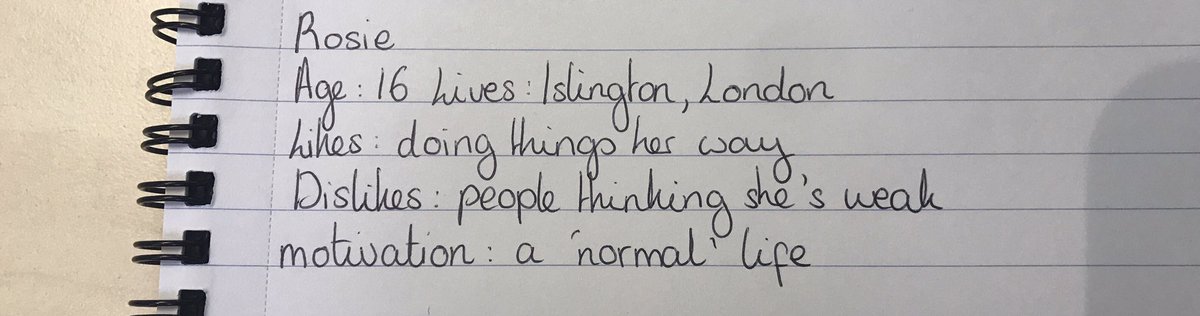 Rosie
Age: 16 Lives: Islington, London
Likes: doing things her way
Dislikes: people thinking she's weak
motivation: a 'normal' life